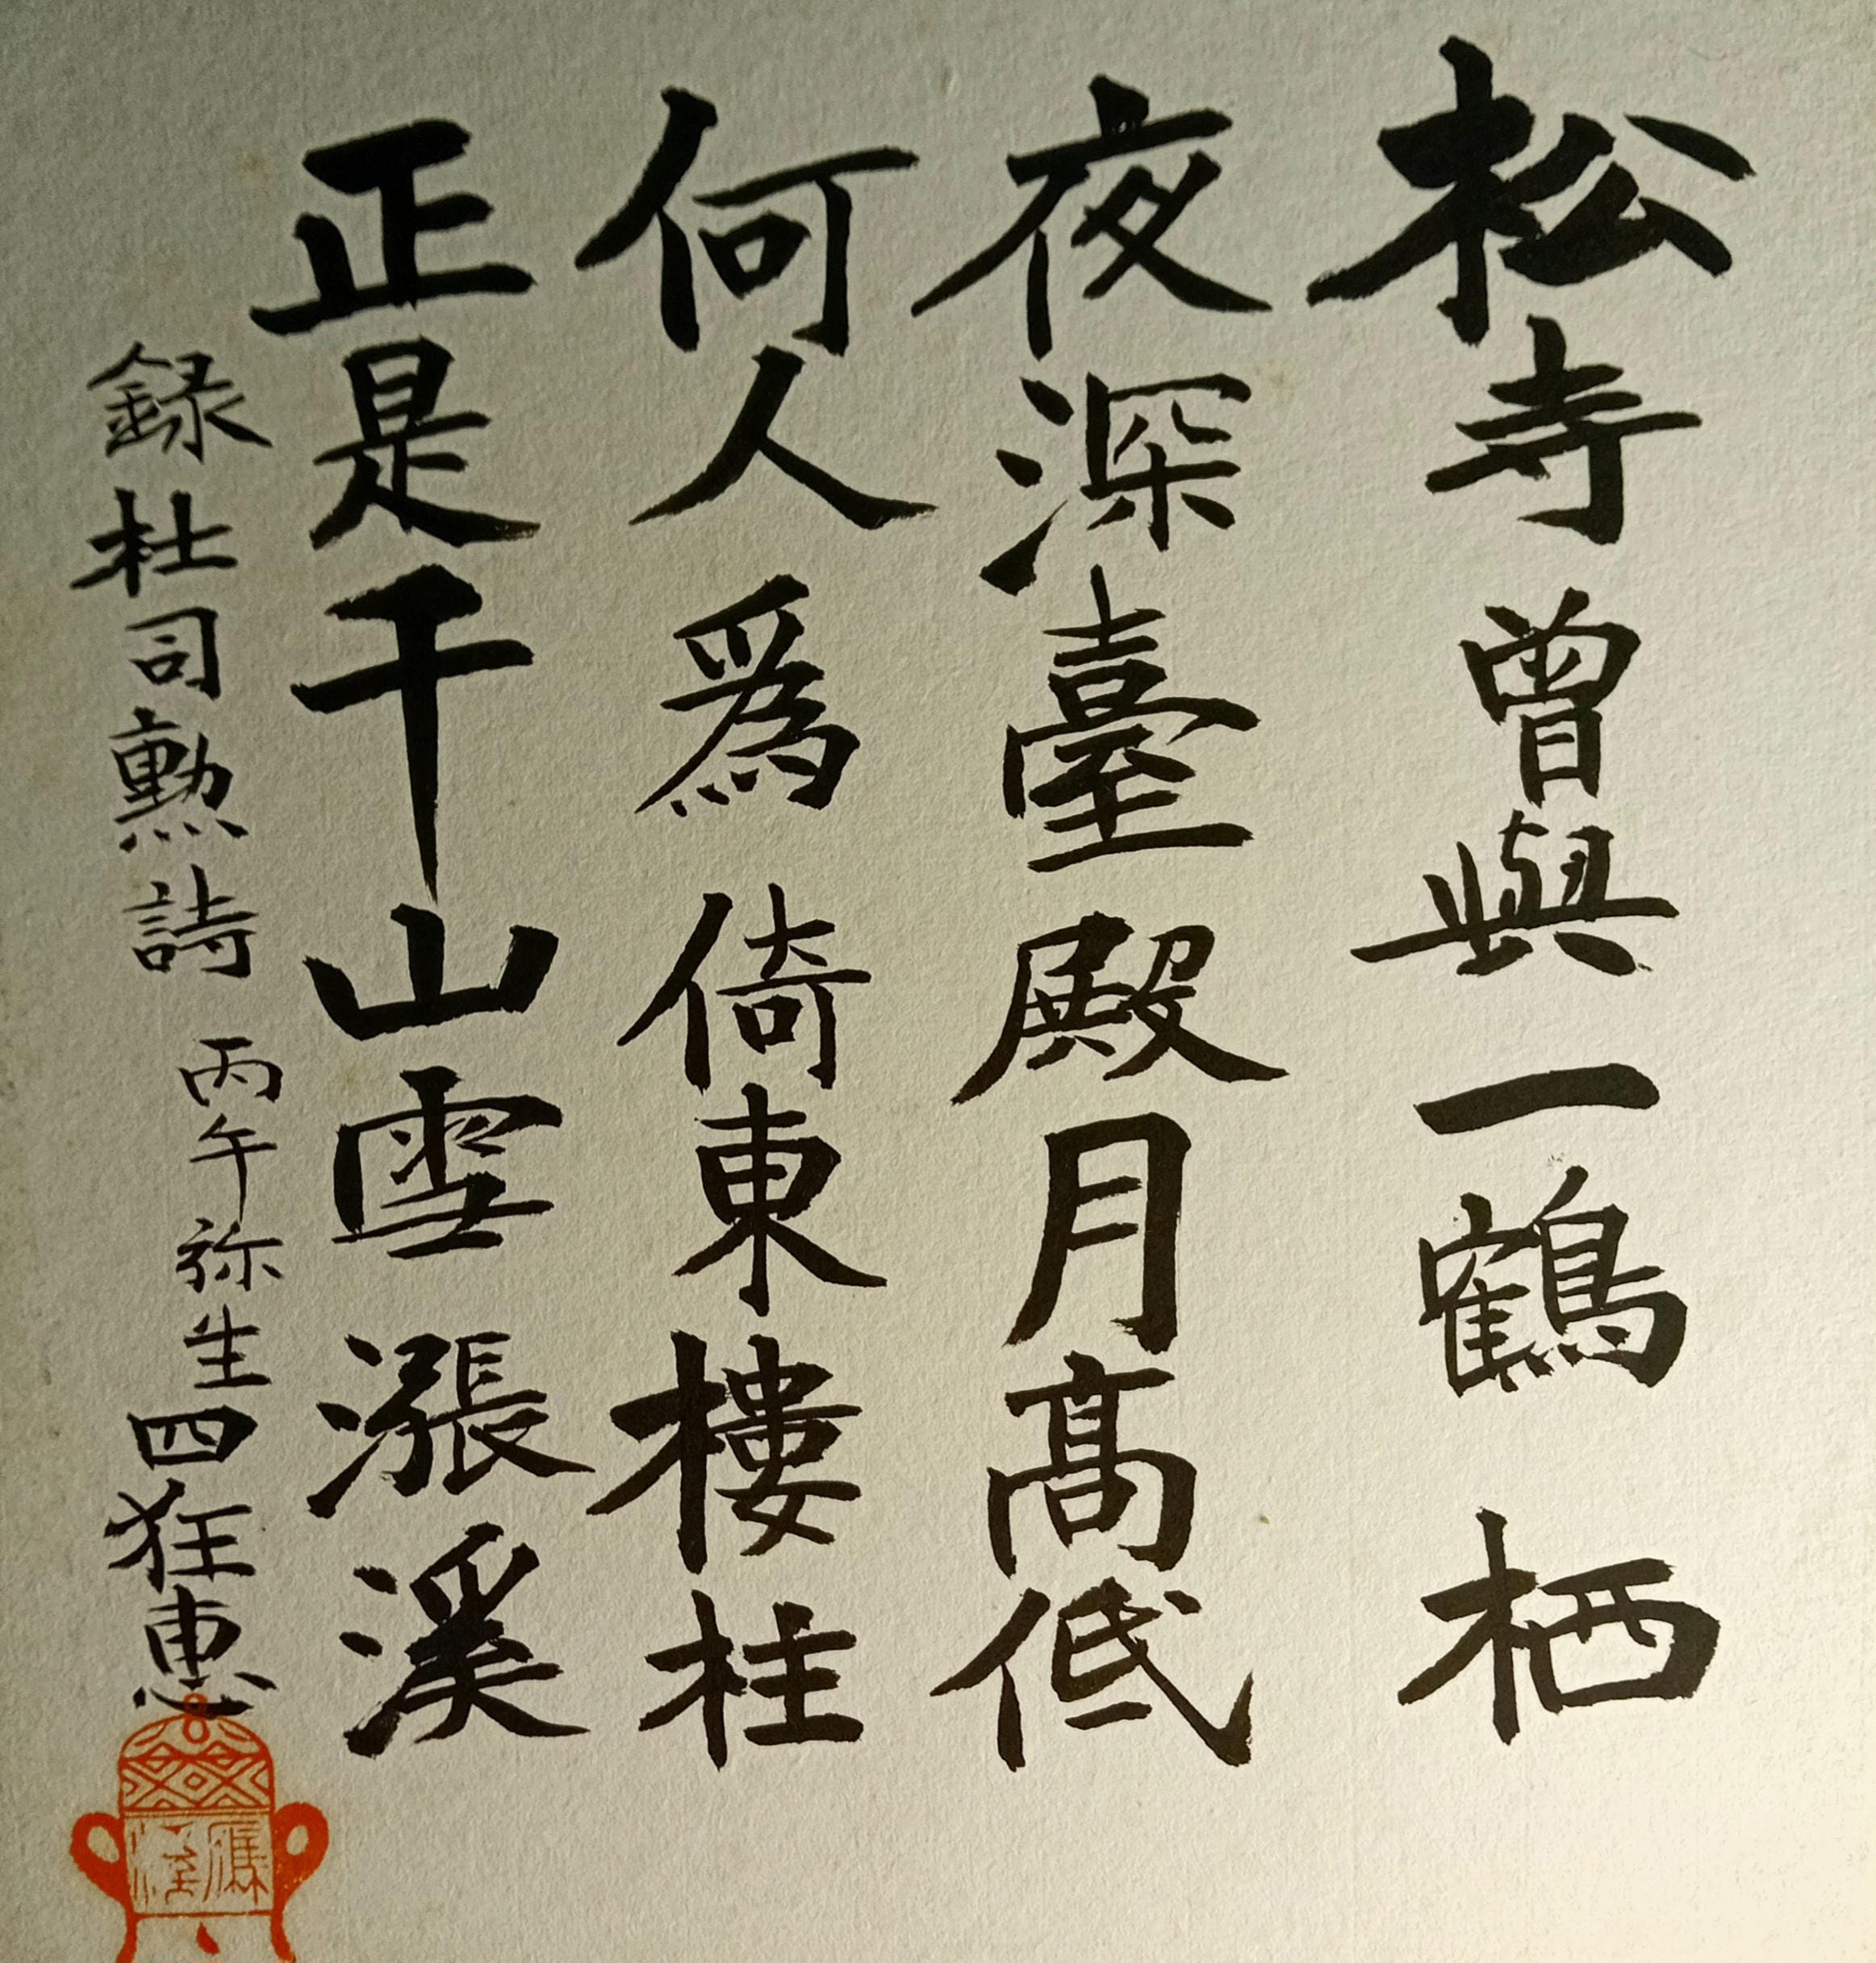 松寺曾與一鶴栖
夜深臺殿月髙低
何人爲倚東樓柱
正是千山雪漲溪
録杜司勲詩 丙午弥生四狂惠